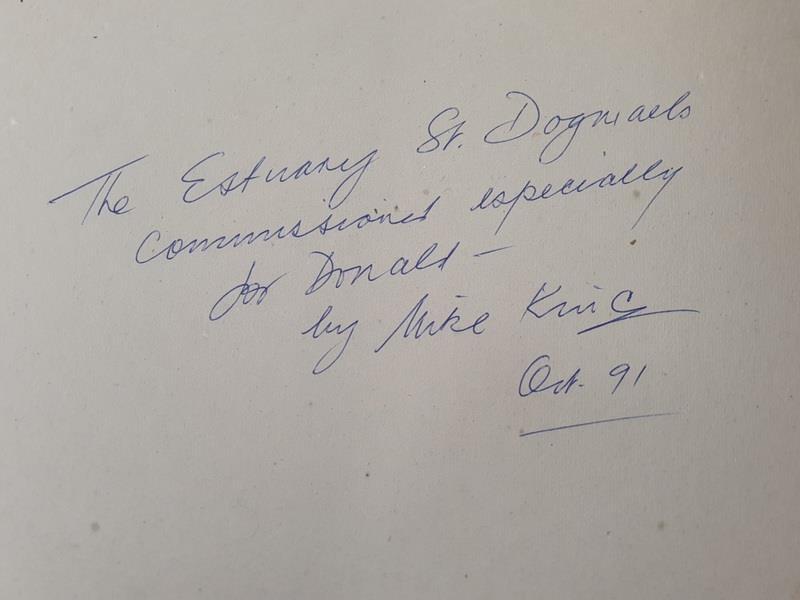 The Estuary St. Dogmaels
Commissioned especially
for Donald —
by Mike King
Oct. 91